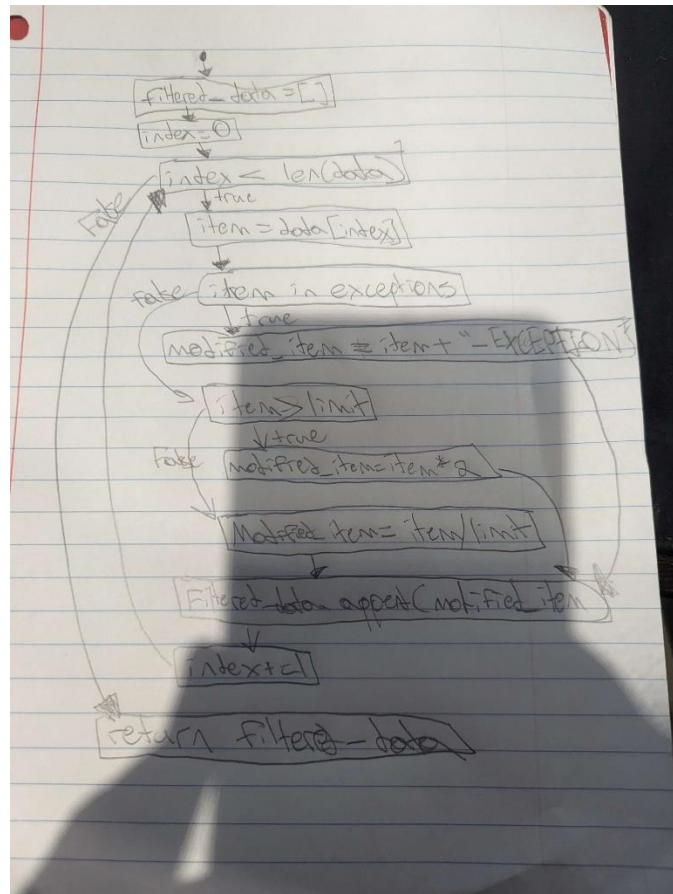 filtered_data = []
index = 0
index < len(data)
False
true
item = data[index]
false
item in exceptions
true
modified_item = item + "-EXCEPTION"
item > limit
true
False
modified_item = item * 2
Modified item = item / limit
Filtered_data append(modified_item
index += 1
return filtered_data